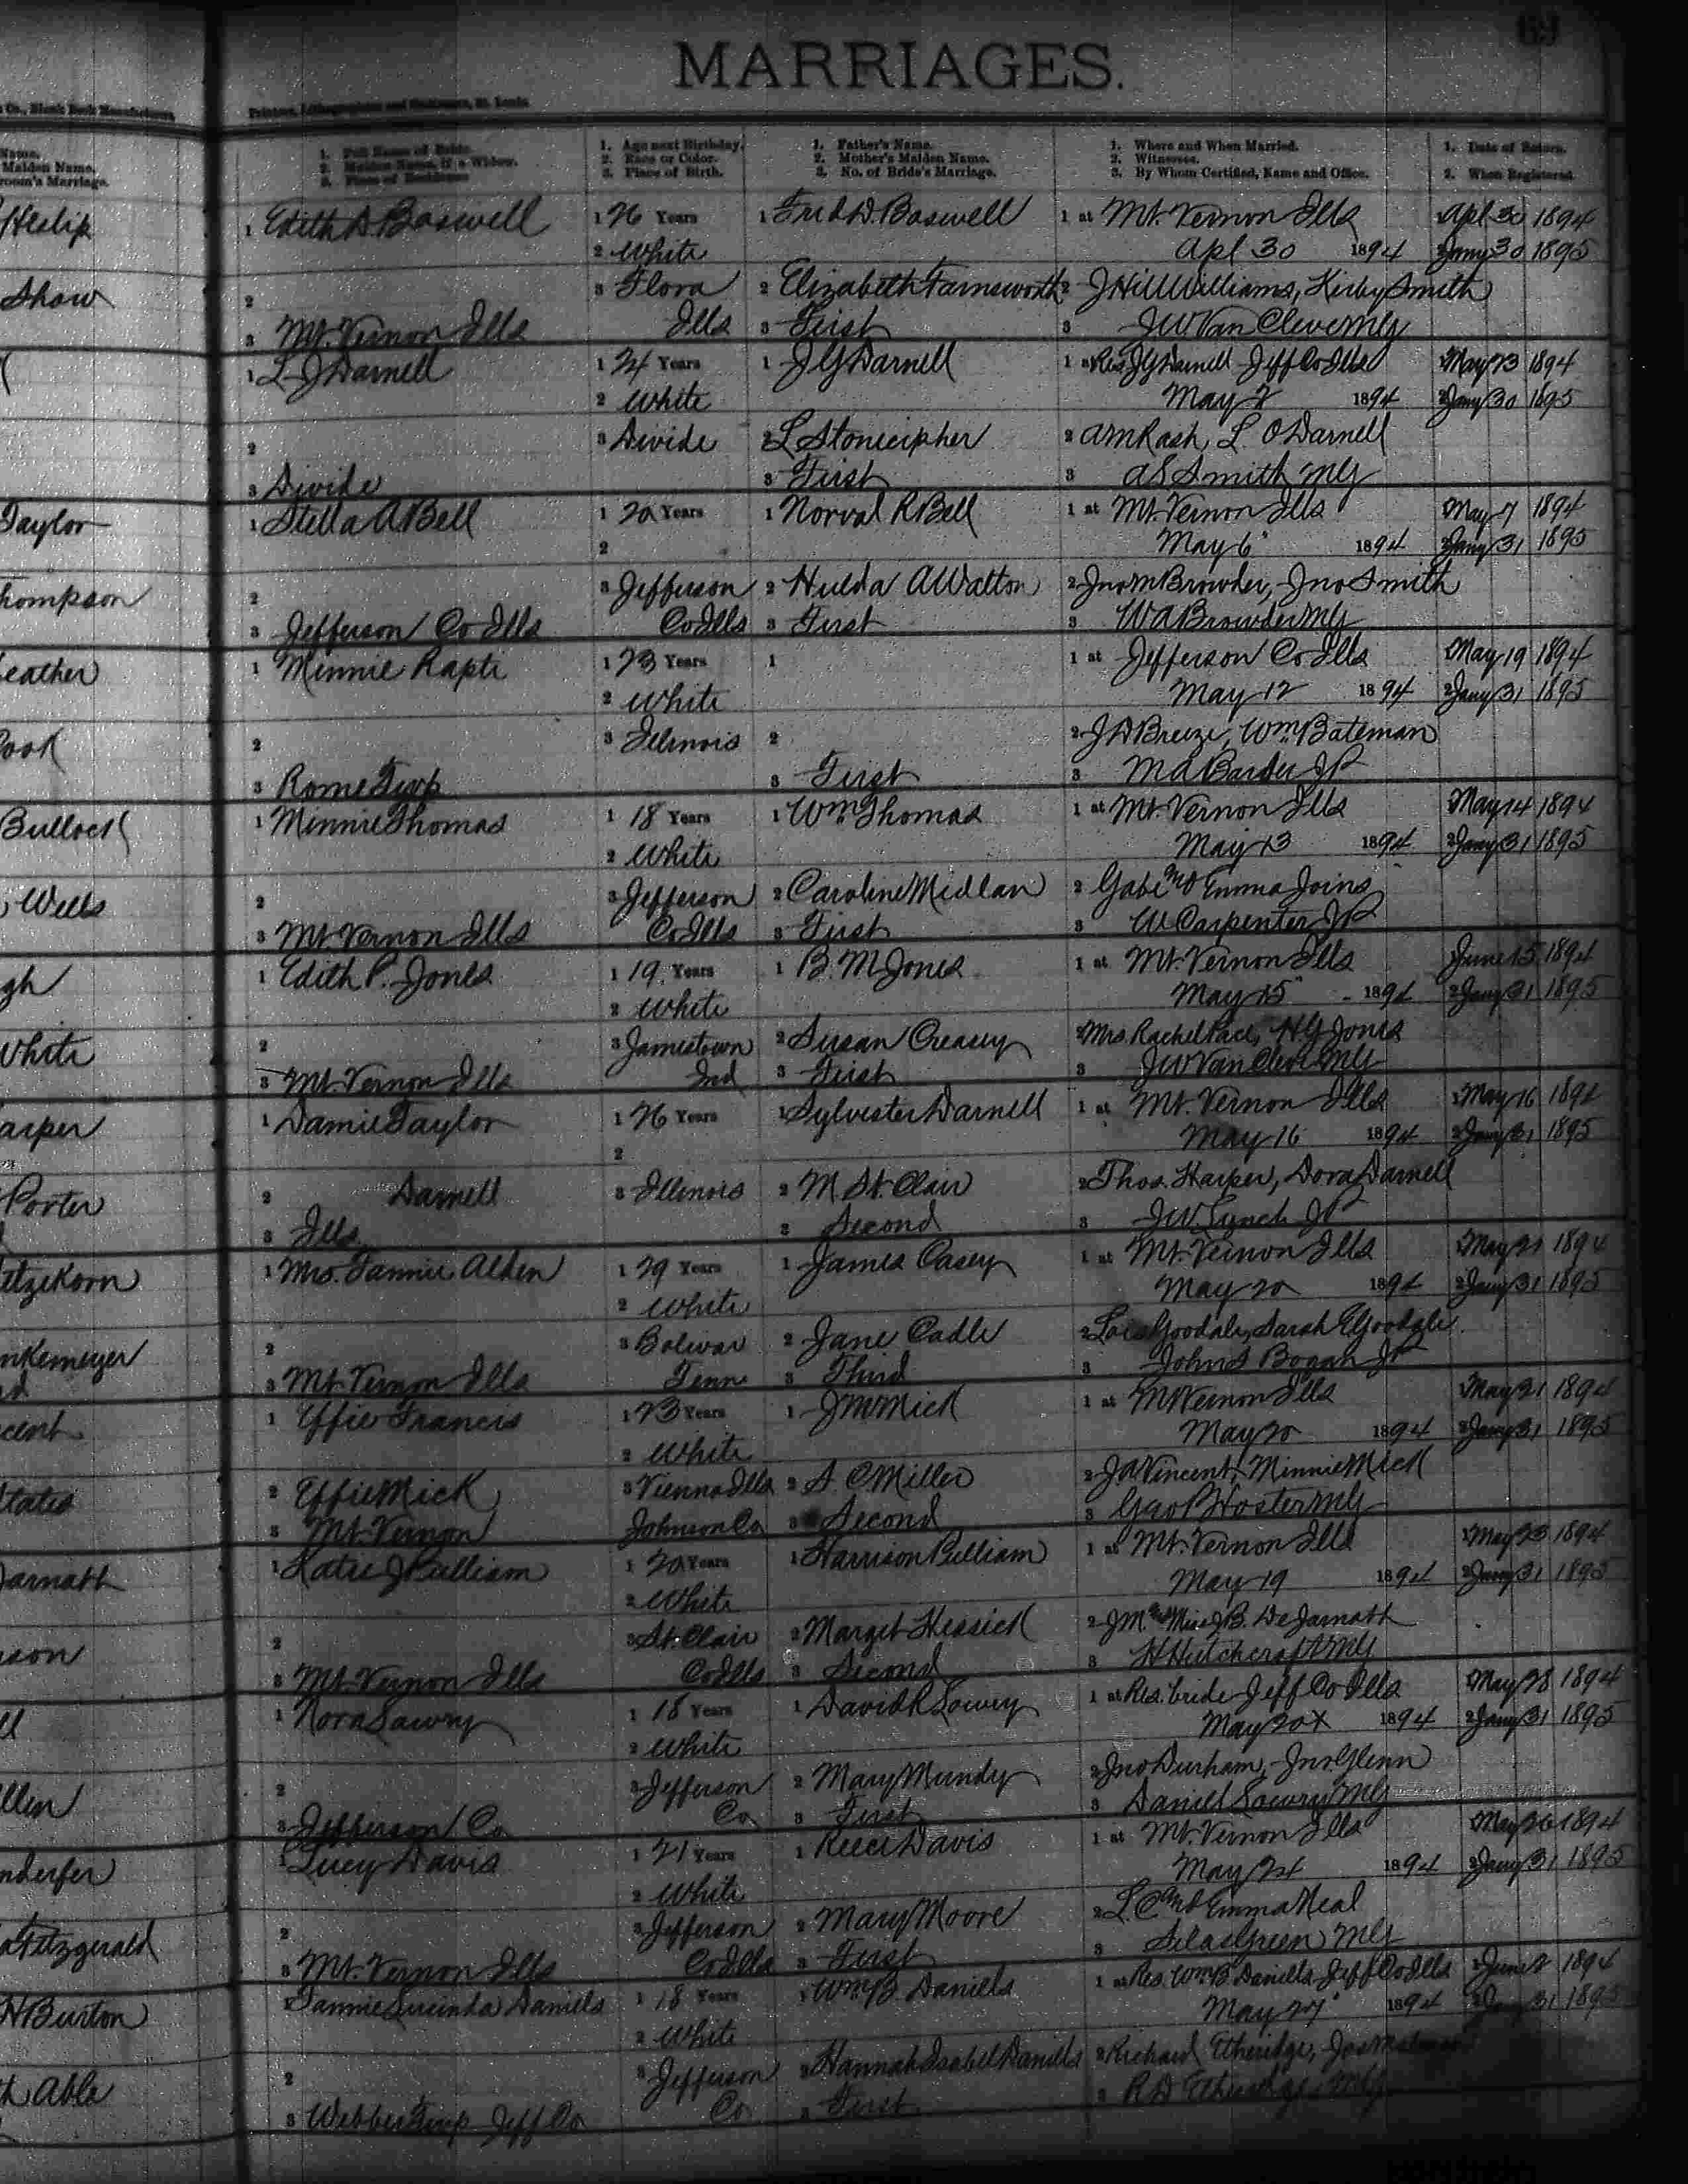 69
MARRIAGES.
Co., Blank Book Manufacturers,
Printers, Lithographers and Stationers, St. Louis.
Name.
Maiden Name.
room's Marriage.
1. Full Name of Bride.
2. Maiden Name, if a Widow.
3. Place of Residence
1. Age next Birthday.
2. Race or Color.
3. Place of Birth.
1. Father's Name.
2. Mother's Maiden Name.
3. No. of Bride's Marriage.
1. Where and When Married.
2. Witnesses.
3. By Whom Certified, Name and Office.
1. Date of Return.
2. When Registered
Heslip
1 Edith D Boswell 1 26 Years 1 Fred D. Boswell 1 at Mt. Vernon Ills 1 Apl 30 1894
2 White Apl 30 1894 2 Jany 30 1895
Shaw
2 3 Flora 2 Elizabeth Farnsworth 2 J Hill Williams, Kirby Smith
3 Mt. Vernon Ills Ills 3 First 3 JW Van Cleve MG
1 L J Darnell 1 24 Years 1 J G Darnell 1 at Res J G Darnell Jeff Co Ills 1 May 23 1894
2 White May 2 1894 2 Jany 30 1895
2 3 Divide 2 L Stonecipher 2 AM Rash, L. O Darnell
3 Divide 3 First 3 A S Smith MG
Taylor
1 Stella A Bell 1 20 Years 1 Norval R Bell 1 at Mt. Vernon Ills 1 May 7 1894
2 May 6 1894 2 Jany 31 1895
hompson
2 3 Jefferson 2 Hulda A Walton 2 Jno M Browder, Jno Smith
3 Jefferson Co Ills Co Ills 3 First 3 W A Browder MG
eather
1 Minnie Rapte 1 23 Years 1 1 at Jefferson Co Ills 1 May 19 1894
2 White May 12 1894 2 Jany 31 1895
Cook
2 3 Illinois 2 2 J D Breeze, Wm Bateman
3 Rome Twp 3 First 3 M A JP
Bullock
1 Minnie Thomas 1 18 Years 1 Wm Thomas 1 at Mt. Vernon Ills 1 May 14 1894
2 White May 13 1894 2 Jany 31 1895
Wells
2 3 Jefferson 2 Caroline Midlan 2 Gabe and Emma Joins
3 Mt Vernon Ills Co Ills 3 First 3 W Carpenter JP
gh
1 Edith P. Jones 1 19 Years 1 B. M Jones 1 at Mt. Vernon Ills 1 June 15 1894
2 White May 15 1894 2 Jany 31 1895
White
2 3 Jamestown 2 Susan Creasey 2 Mrs. Rachel Pace, H G Jones
3 Mt Vernon Ills Ind 3 First 3 JW Van Cleve MG
arper
1 Damie Taylor 1 26 Years 1 Sylvester Darnell 1 at Mt. Vernon Ills 1 May 16 1894
2 May 16 1894 2 Jany 31 1895
Porter
2 Darnell 3 Illinois 2 M St. Clair 2 Thos. Harper, Dora Darnell
3 Ills 3 Second 3 J W Lynch JP
etzekorn
1 Mrs. Fannie Alden 1 29 Years 1 James Casey 1 at Mt. Vernon Ills 1 May 21 1894
2 White May 20 1894 2 Jany 31 1895
nkemeyer
2 3 Bolivar 2 Jane Cadle 2 Goodale, Sarah E Goodale
3 Mt Vernon Ills Tenn 3 Third 3 John S Bogan JP
cent
1 Effie Francis 1 23 Years 1 J M Mick 1 at Mt Vernon Ills 1 May 21 1894
2 White May 20 1894 2 Jany 31 1895
tates
2 Effie Mick 3 Vienna Ills 2 S. C Miller 2 J A Vincent, Minnie Mick
3 Mt Vernon Johnson Co 3 Second 3 Geo P Hoster MG
Jarnath
1 Katie J Pulliam 1 20 Years 1 Harrison Pulliam 1 at Mt. Vernon Ills 1 May 23 1894
2 White May 19 1894 2 Jany 31 1895
son
2 3 St. Clair 2 Margit Hessick 2 J M. and Miss J B. De Jarnath
3 Mt Vernon Ills Co Ills 3 Second 3 H Hutchcraft MG
1 Nora Lowry 1 18 Years 1 David R Lowry 1 at Res. bride Jeff Co Ills 1 May 28 1894
2 White May 20 1894 2 Jany 31 1895
llen
2 3 Jefferson 2 Mary Mundy 2 Jno Durham, Jno Glenn
3 Jefferson Co Co 3 First 3 Daniel Lowry MG
nderfer
1 Lucy Davis 1 21 Years 1 Reece Davis 1 at Mt. Vernon Ills 1 May 26 1894
2 White May 24 1894 2 Jany 31 1895
Fitzgerald
2 3 Jefferson 2 Mary Moore 2 L. C and Emma Neal
3 Mt. Vernon Ills Co Ills 3 First 3 Silas Green MG
N Burton
1 Fannie Lucinda Daniels 1 18 Years 1 Wm B. Daniels 1 at Res. Wm B. Daniels Jeff Co Ills 1 June 2 1894
2 White May 27 1894 2 Jany 31 1895
h Able
2 3 Jefferson 2 Hannah Isabel Daniels 2 Richard Etheridge,
3 Webber Twp Jeff Co Co 3 First 3 R D Etheridge MG